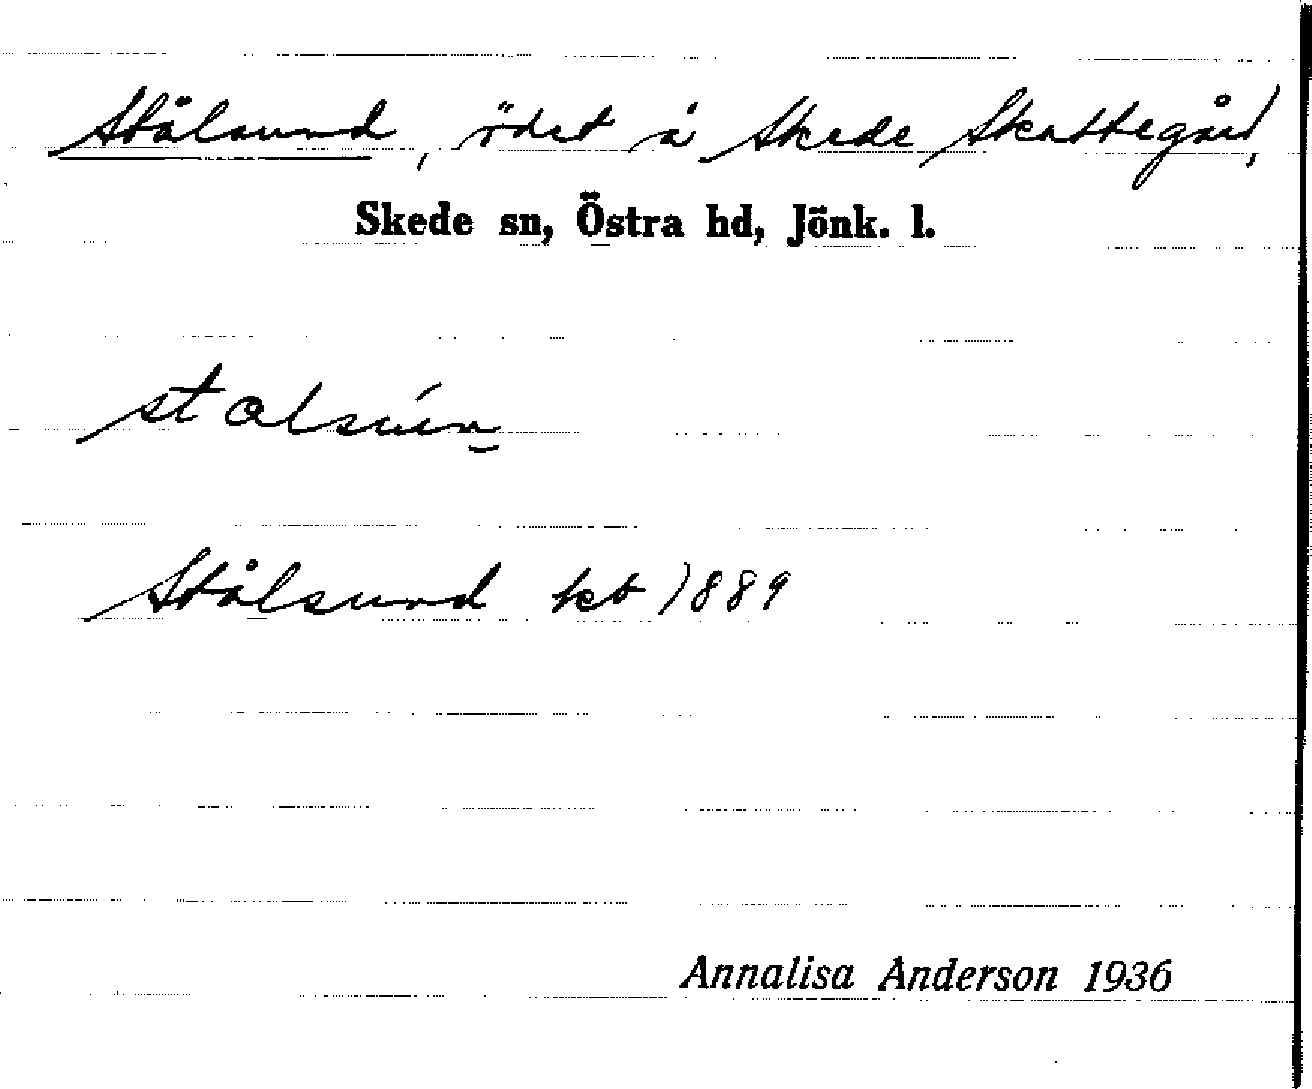 Stålsund, ödet å Skede Skattegård,
Skede sn, Östra hd, Jönk. l.
Stålsund kb 1889
Annalisa Anderson 1936